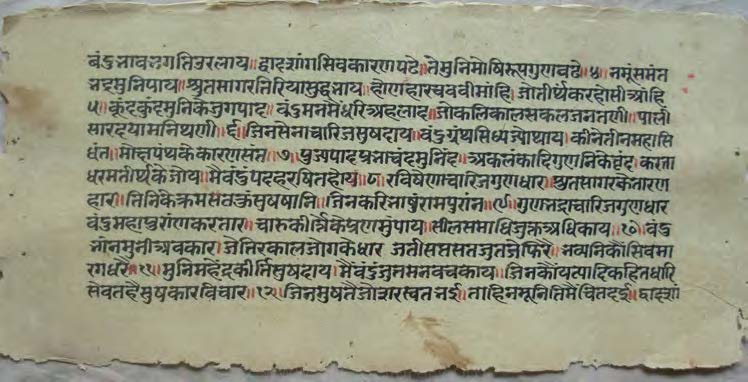 बंदुनावलगतिउरलाय॥द्वादशांगसिवकारणपढे॥तेमुनिमोषिरूपगुणवढे॥४॥नमूंसमंत
भद्रमुनिपाय॥श्रुतसागरतिरियासुद्दभाय॥होणहारचववीसमांहि॥जोतीर्थकरहोसीओहि
५॥कुंदकुंदमुनिकेजुगपाद॥वंदुमनमैंधरिअहलाद॥जोकलिकालसकलजनतणी॥पाली
सारदयामनिघणी॥६॥जिनसेनाचारिजसुषदाय॥वंदुग्रंथसिध्यजोथाय॥कीनेतीनमहासि
धंत॥मोक्षपंथकेकारणसंत॥७॥पुज्यपादप्रभाचंदमुनिंद॥अकलंकादिगुणनिकेवृंद॥करता
धरमतीर्थकेजोय॥मैवंदुपदहरषितहोय॥८॥रविषेणाचारिजगुणधार॥श्रुतसागरकेतारण
हार॥तिनिकेक्रमसेवउंसुषषानि॥जिनकरिभाषुंरामपुरांन॥९॥गुणभद्राचारिजगुणधार
वंदुमहापुरांणकरतार॥चारुकीर्त्तिकेप्रणमुंपाय॥सीलसमाधिजुक्तअधिकाय॥१०॥वंदु
नांनमुनीअवकार॥जेतिरकालजोगकेधार॥जतीसप्तसतजुतजेफिरै॥भव्यनिकौंसिवमा
रगधरै॥११॥मुनिमहेंद्रकीर्त्तिसुषदाय॥मैंवंदुजुगमनवचकाय॥जिनकौंषत्यादिकहितधारि
सेवतहैसुषकारविचार॥१२॥जिनमुषतैजोसारस्वतभई॥ताहिनमूनितिमैंचितदई॥द्वादशां